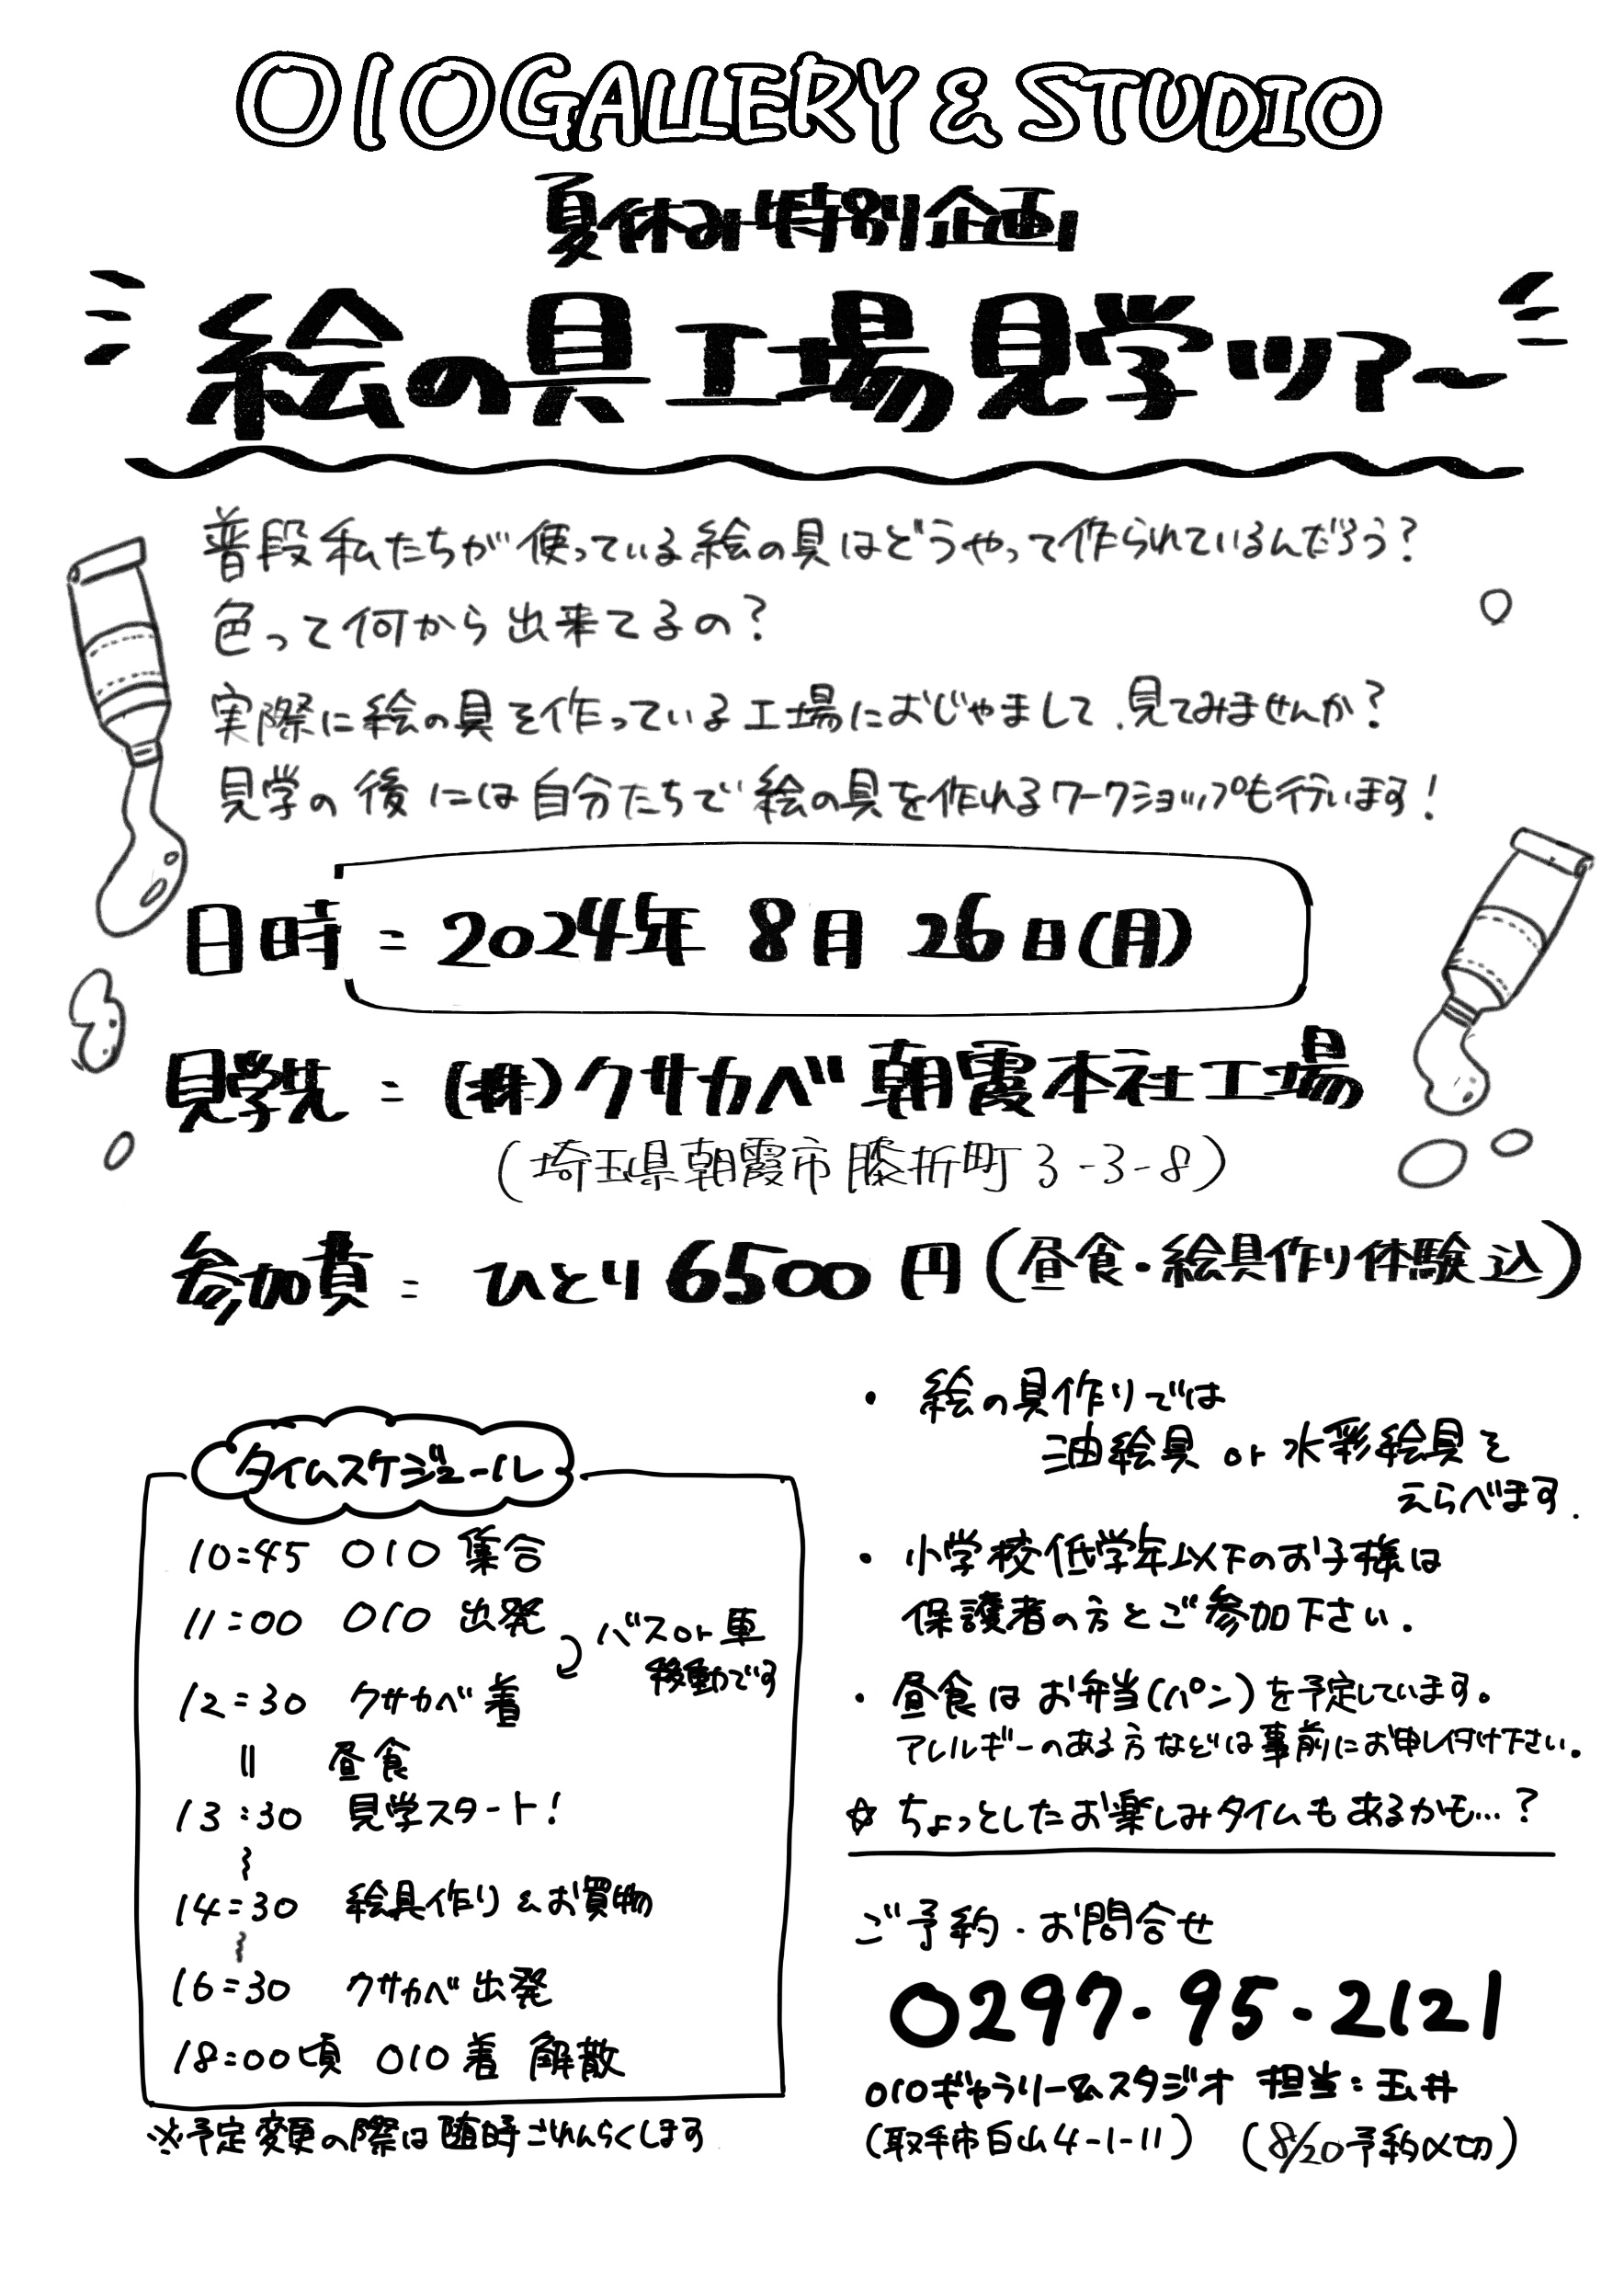 010GALLERY & STUDIO
夏休み特別企画
絵の具工場見学ツアー
普段私たちが使っている絵の具はどうやって作られているんだろう?
色って何から出来てるの?
実際に絵の具を作っている工場におじゃまして、見てみませんか?
見学の後には自分たちで絵の具を作れるワークショップも行います!
日時=2024年 8月 26日(月)
見学先=(株)クサカベ 朝霞本社工場
(埼玉県朝霞市膝折町3-3-8)
参加費=ひとり6500円(昼食・絵具作り体験込)
タイムスケジュール
10:45 010 集合
11:00 010 出発
バスor車
移動です
12:30 クサカベ着
〃 昼食
13:30 見学スタート!
〜
14:30 絵具作り&お買物
〜
16:30 クサカベ出発
18:00頃 010着 解散
※予定変更の際は随時ごれんらくします
・絵の具作りでは
油絵具 or 水彩絵具を
えらべます.
・小学校低学年以下のお子様は
保護者の方とご参加下さい.
・昼食はお弁当(パン)を予定しています。
アレルギーのある方などは事前にお申し付け下さい.
☆ちょっとしたお楽しみタイムもあるかも…?
ご予約・お問合せ
0297-95-2121
010ギャラリー&スタジオ 担当:玉井
(取手市白山4-1-11) (8/20予約〆切)